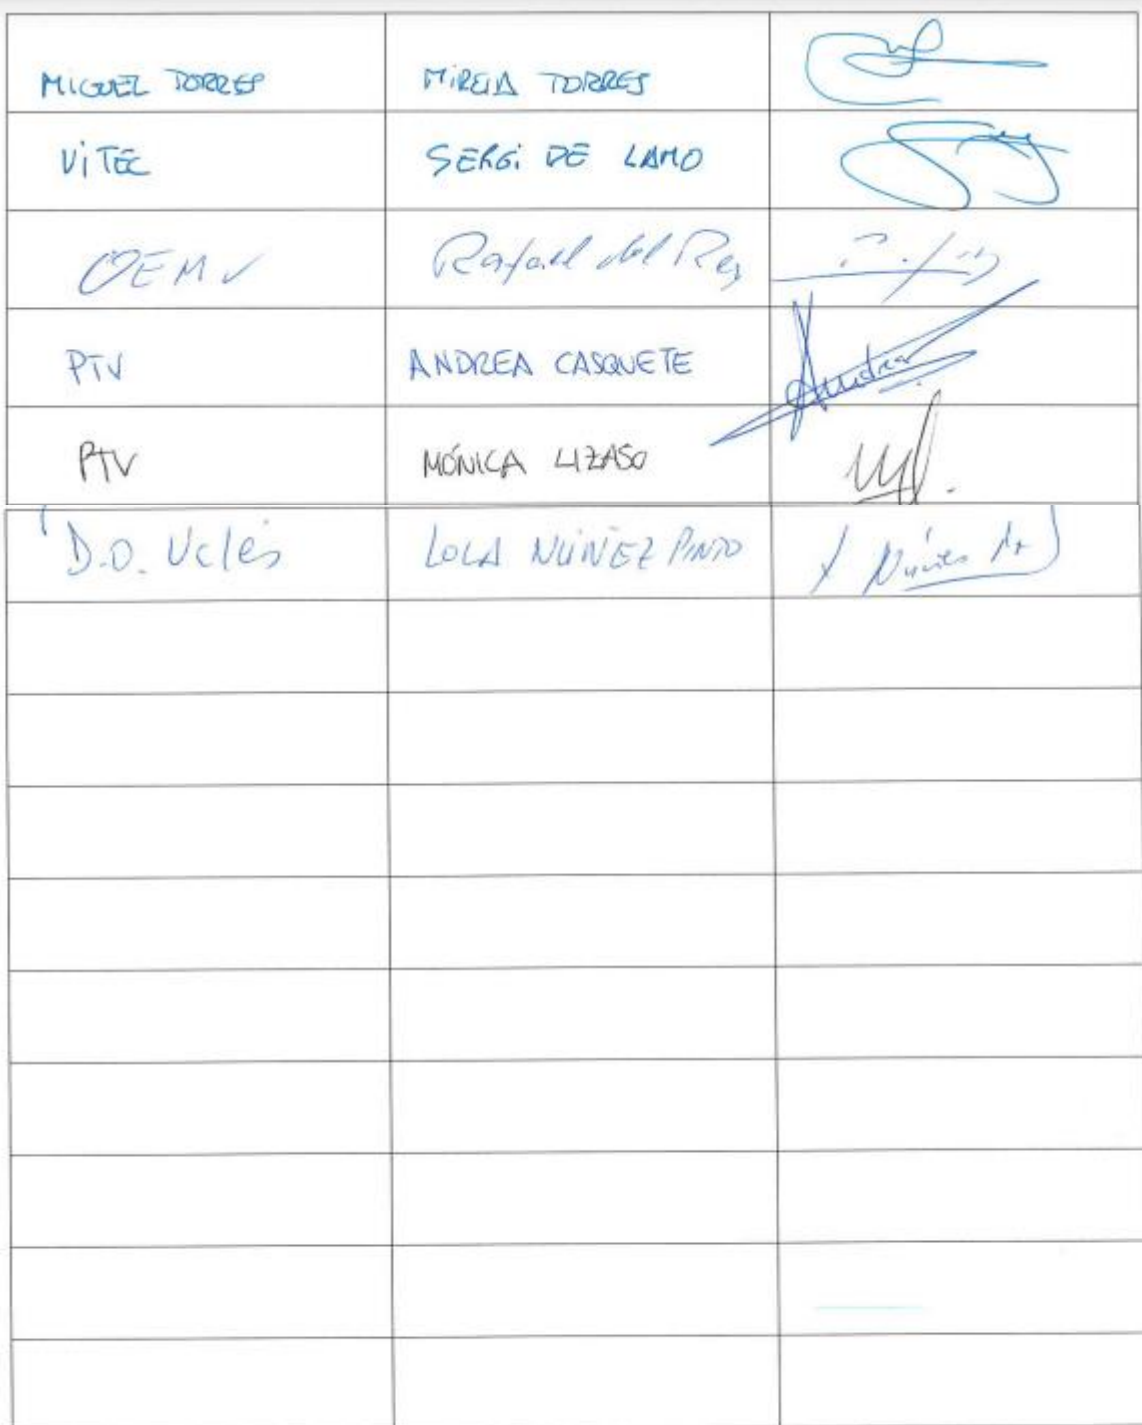 MIGUEL TORRES MIREIA TORRES
VITEC SERGI DE LAMO
OEMV Rafael del Rey
PTV ANDREA CASQUETE Andrea
PTV MÓNICA LIZASO
D.O. Uclés LOLA NÚÑEZ PINTO Núñez